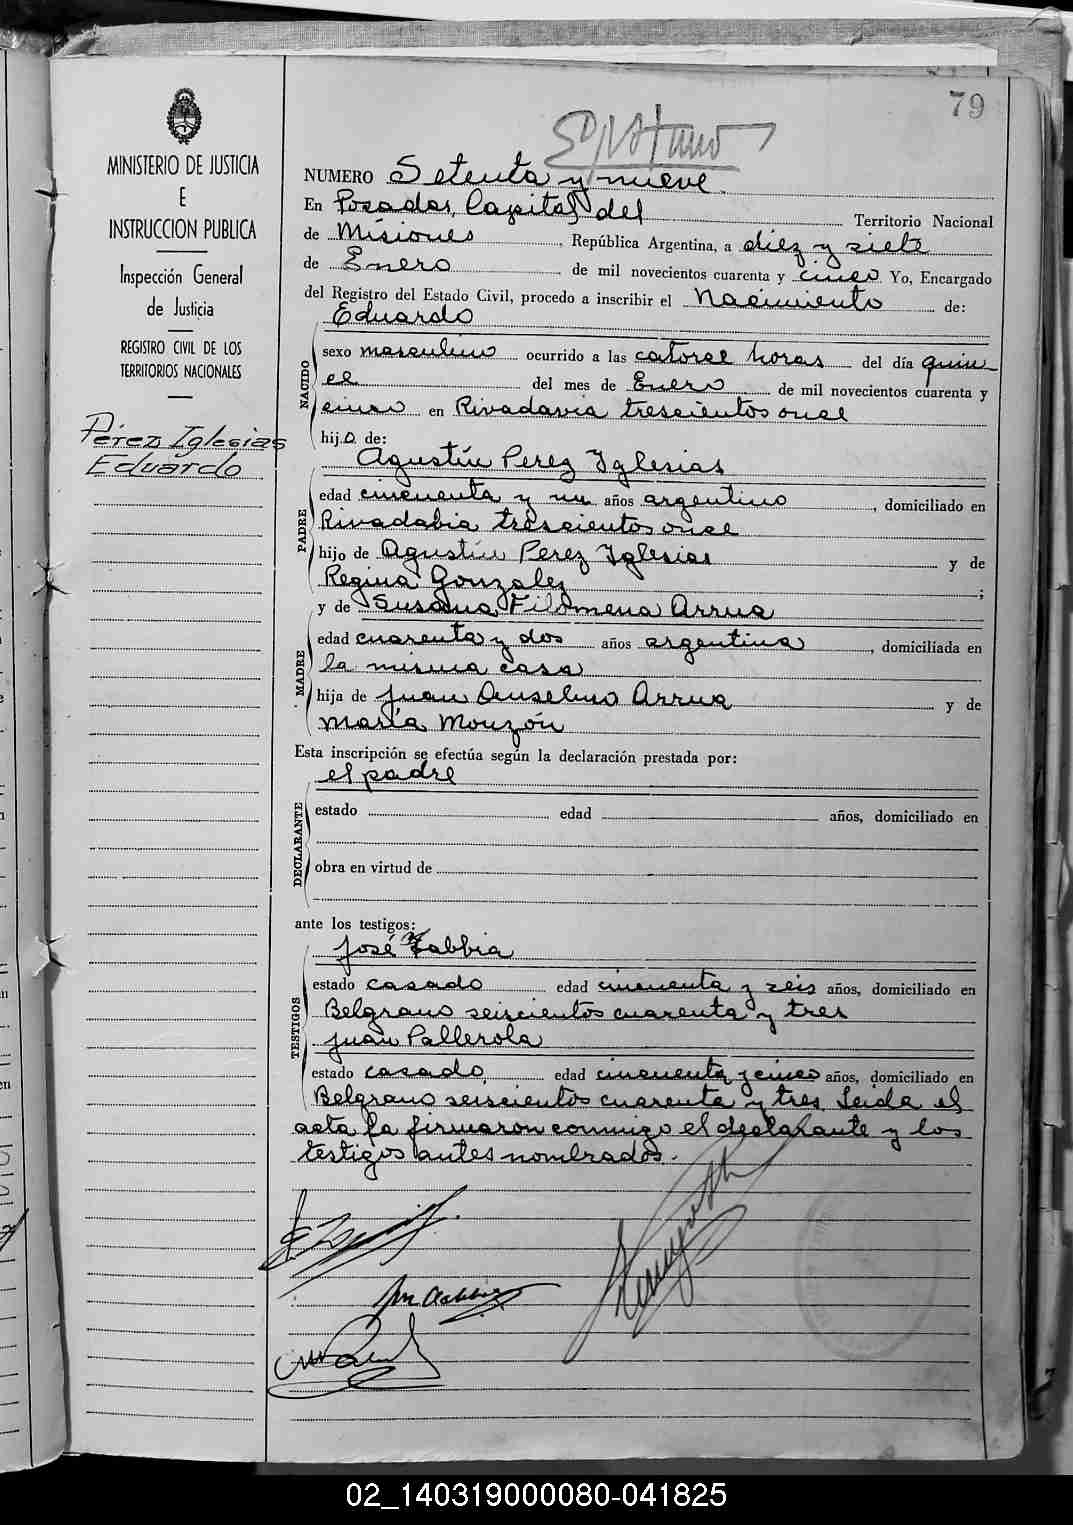 79
MINISTERIO DE JUSTICIA
E
INSTRUCCION PUBLICA
Inspección General
de Justicia
REGISTRO CIVIL DE LOS
TERRITORIOS NACIONALES
Pérez Iglesias
Eduardo
NUMERO Setenta y nueve
En Posadas, Capital del Territorio Nacional
de Misiones, República Argentina, a diez y siete
de Enero de mil novecientos cuarenta y cinco Yo, Encargado
del Registro del Estado Civil, procedo a inscribir el Nacimiento de:
Eduardo
NACIDO
sexo masculino ocurrido a las catorce horas del día quin-
ce del mes de Enero de mil novecientos cuarenta y
cinco en Rivadavia trescientos once
hijo de:
Agustín Perez Iglesias
PADRE
edad cincuenta y un años argentino, domiciliado en
Rivadabia trescientos once
hijo de Agustín Perez Iglesias y de
Regina Gonzalez;
y de Susana Filomena Arrua
MADRE
edad cuarenta y dos años argentina, domiciliada en
la misma casa
hija de Juan Anselmo Arrua y de
María Monzón
Esta inscripción se efectúa según la declaración prestada por:
el padre
DECLARANTE
estado edad años, domiciliado en
obra en virtud de
ante los testigos:
José Fabbia
TESTIGOS
estado casado edad cincuenta y seis años, domiciliado en
Belgrano seiscientos cuarenta y tres
Juan Pallerola
estado casado, edad cincuenta y cinco años, domiciliado en
Belgrano seiscientos cuarenta y tres. Leida el
acta la firmaron conmigo el declarante y los
testigos antes nombrados.
02_140319000080-041825